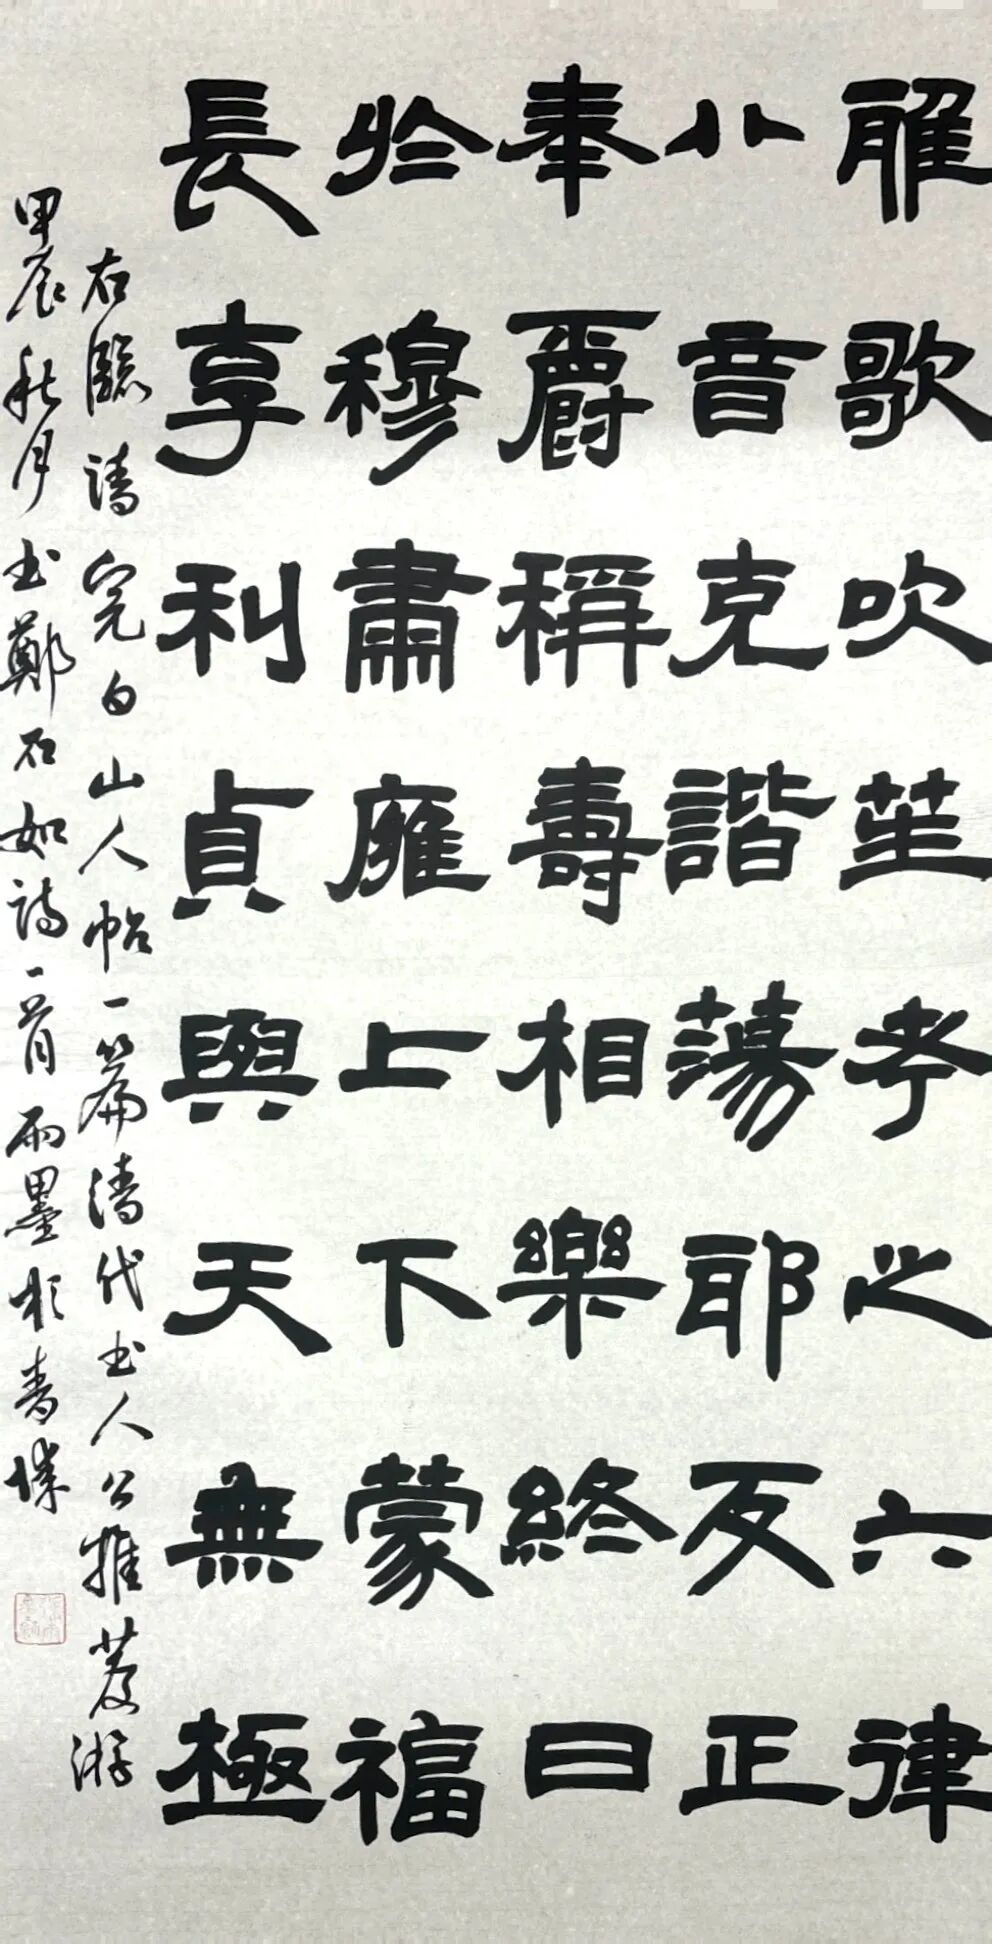 雅歌吹笙考之六律
八音克諧蕩耶反正
奉爵稱壽相樂終日
於穆肅廱上下蒙福
長享利貞與天無極
右臨清完白山人帖一篇清代书人公推
甲辰秋月书鄭石如詩一首雨墨於